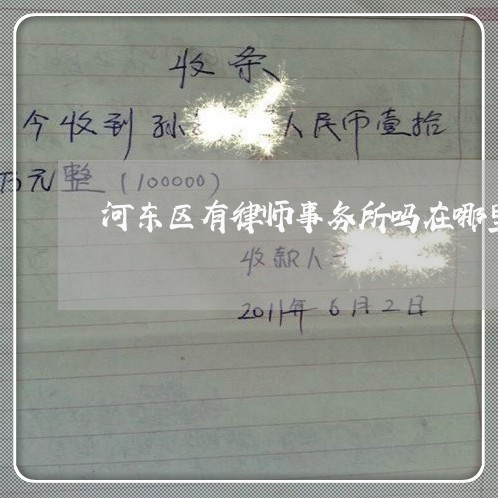 收条
今收到孙 人民币壹拾
万元整(100000)
河东区有律师事务所吗在哪里
收款人
2011年6月2日